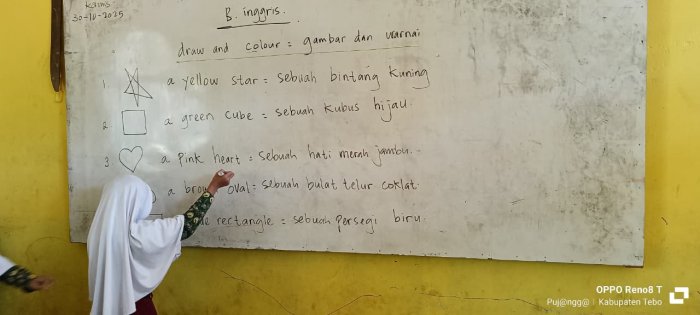 Kamis
30-10-2025
B. inggris.
draw and colour = gambar dan warnai
1. a yellow star = sebuah bintang kuning
2. a green cube = sebuah kubus hijau.
3. a pink heart = sebuah hati merah jambu.
a oval = sebuah bulat telur coklat.
rectangle = sebuah persegi biru.
OPPO Reno8 T
Puj@ngg@ | Kabupaten Tebo